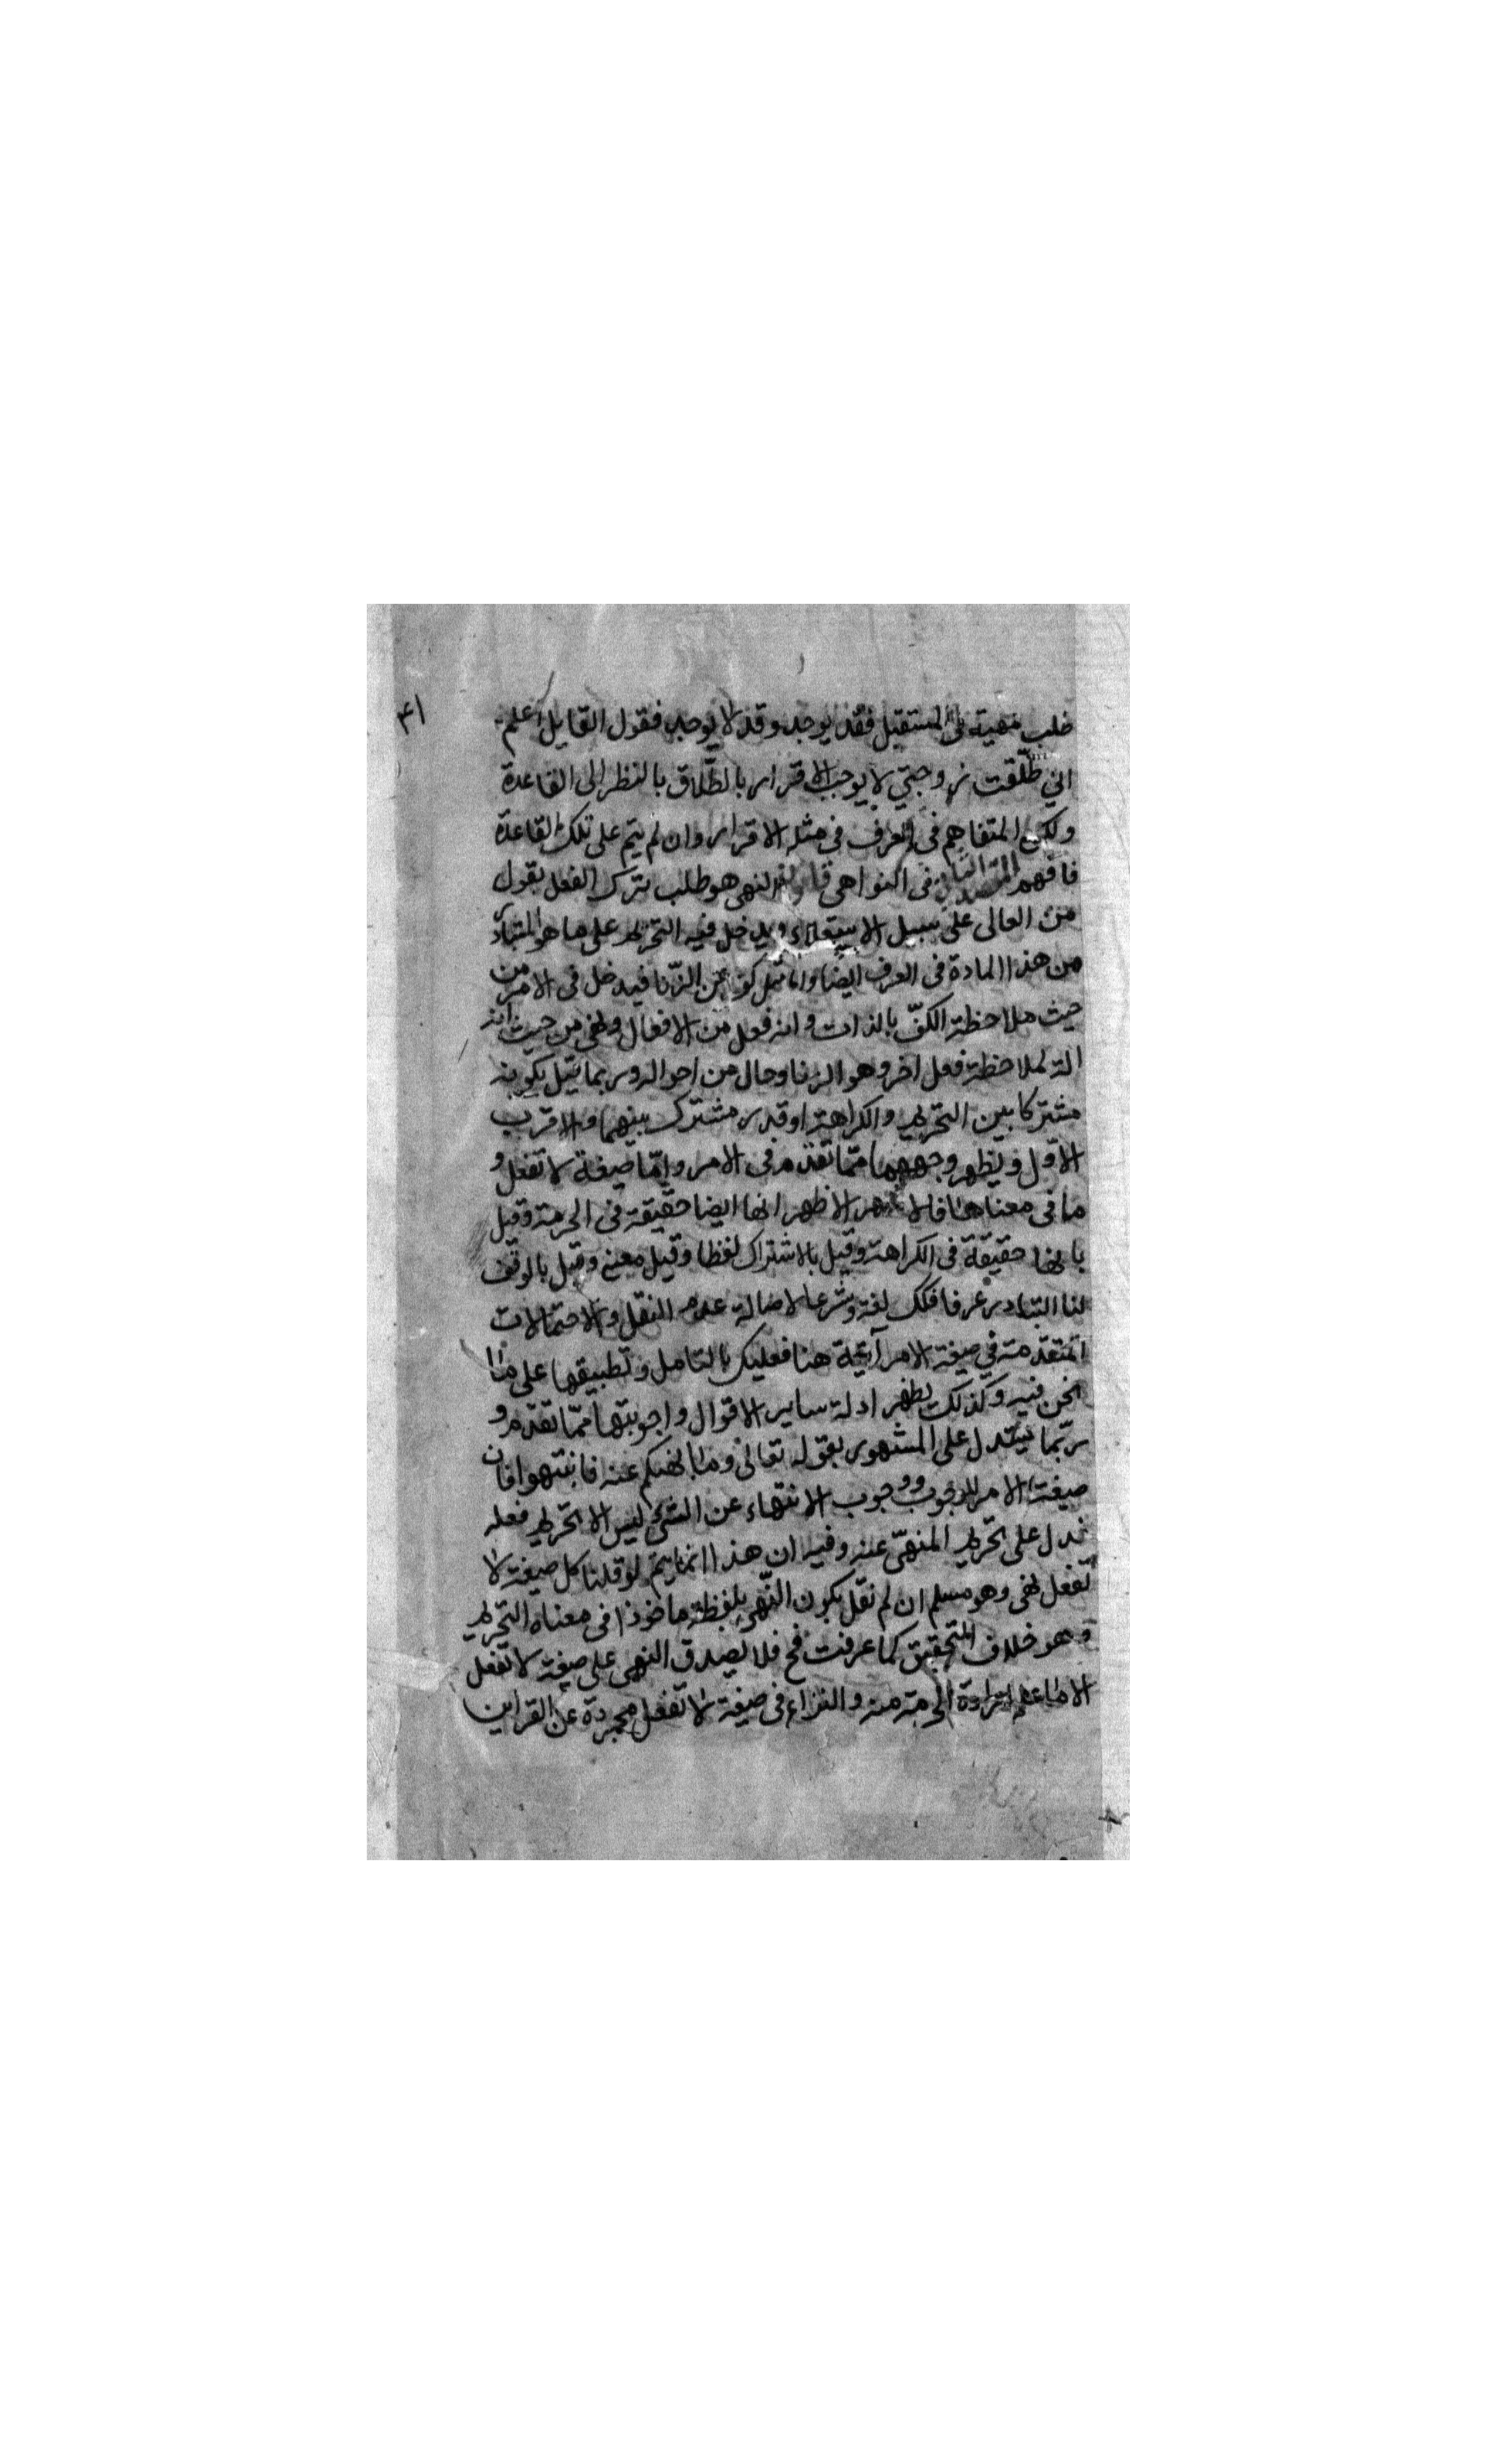 ۴۱
طلب مهية فى المستقبل فقد يوجد وقد لا يوجد فقول القايل اعلم
اني طلّقت زوجتي لا يوجب الاقرار بالطّلاق بالنظر الى القاعدة
ولكن المتفاهم فى العرف فى مثله الاقرار وان لم يتم على تلك القاعدة
فافهم فى النواهى قانون النهى هو طلب ترك الفعل بقول
من العالى على سبيل الاستعلاء ويدخل فيه التحريم على ما هو المتبادر
من هذا المادة فى العرف ايضا واما مثل كف عن الزّنا فيدخل فى الامر من
حيث ملاحظة الكفّ بالذات وانه فعل من الافعال ونهى من حيث انه
الة لملاحظة فعل اخر وهو الزنا وحال من احواله وربما قيل بكونه
مشتركا بين التحريم والكراهة او قدر مشترك بينهما والاقرب
الاوّل ويظهر وجههما ممّا تقدم فى الامر وامّا صيغة لا تفعل و
ما فى معناها فالاشهر الاظهر انها ايضا حقيقة فى الحرمة وقيل
بانها حقيقة فى الكراهة وقيل بالاشتراك لفظا وقيل معنى وقيل بالوقف
لنا التبادر عرفا فكك لغة وشرعا لاصالة عدم النقل والاحتمالات
المتقدمة في صيغة الامر آتية هنا فعليك بالتامل وتطبيقها على ما
نحن فيه وكذلك يظهر ادلة ساير الاقوال واجوبتها ممّا تقدم و
ربّما يستدل على المشهور بقوله تعالى وما نهيكم عنه فانتهوا فان
صيغة الامر للوجوب ووجوب الانتهاء عن الشئ ليس الا تحريم فعله
فدل على تحريم المنهىّ عنه وفيه ان هذا انما يتم لو قلنا كل صيغة لا
تفعل نهى وهو مسلم ان لم نقل بكون النّهى بلفظه ماخوذا فى معناه التحريم
وهو خلاف التحقيق كما عرفت فح فلا يصدق النهى على صيغة لا تفعل
الا ما علم ارادة الحرمة منه والنزاع فى صيغة لا تفعل مجردة عن القراين